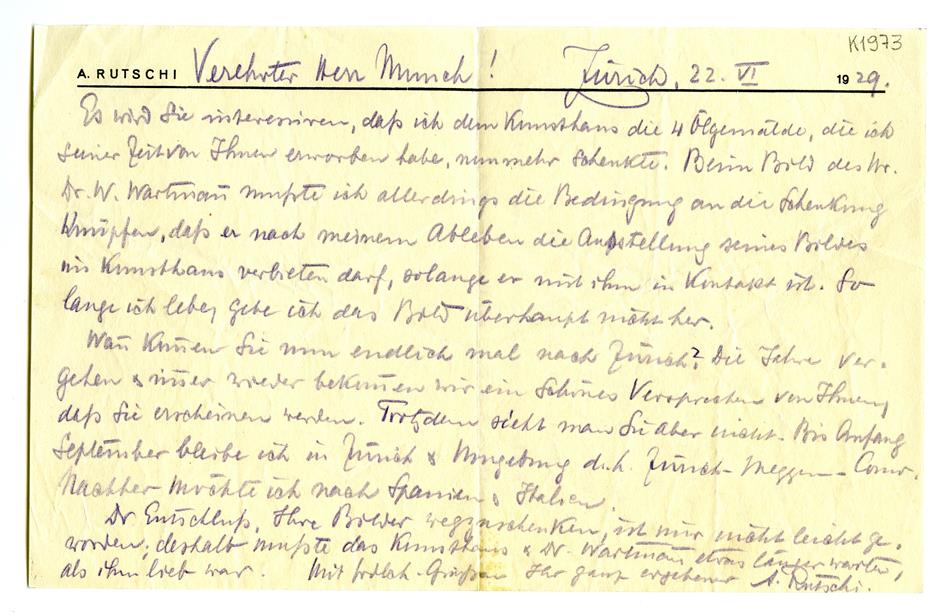 K1973
A. RUTSCHI Verehrter Herr Munch! Zürich, 22. VI 1929.
Es wird Sie interessieren, daß ich dem Kunsthaus die 4 Ölgemälde, die ich
seiner Zeit von Ihnen erworben habe, nunmehr schenkte. Beim Bild des Hr.
Dr. W. Wartmañ mußte ich allerdings die Bedingung an die Schenkung
knüpfen, daß er nach meinem Ableben die Ausstellung seines Bildes
im Kunsthaus verbieten darf, solange er mit ihm in Kontakt ist. So
lange ich lebe, gebe ich das Bild überhaupt nicht her.
Wañ kom̄en Sie nun endlich mal nach Zürich? Die Jahre ver-
gehen & im̄er wieder bekom̄en wir ein schönes Versprechen von Ihnen,
daß Sie erscheinen werden. Trotzdem sieht man Sie aber nicht. Bis Anfang
September bleibe ich in Zürich & Umgebung d.h. Zürich - Meggen - Como.
Nachher möchte ich nach Spanien & Italien.
Der Entschluß, Ihre Bilder wegzuschenken, ist mir nicht leicht ge-
worden, deshalb mußte das Kunsthaus & Dr. Wartmañ etwas länger warten,
als ihm lieb war. Mit frdlch. Grüßen Ihr ganz ergebener A. Rutschi.